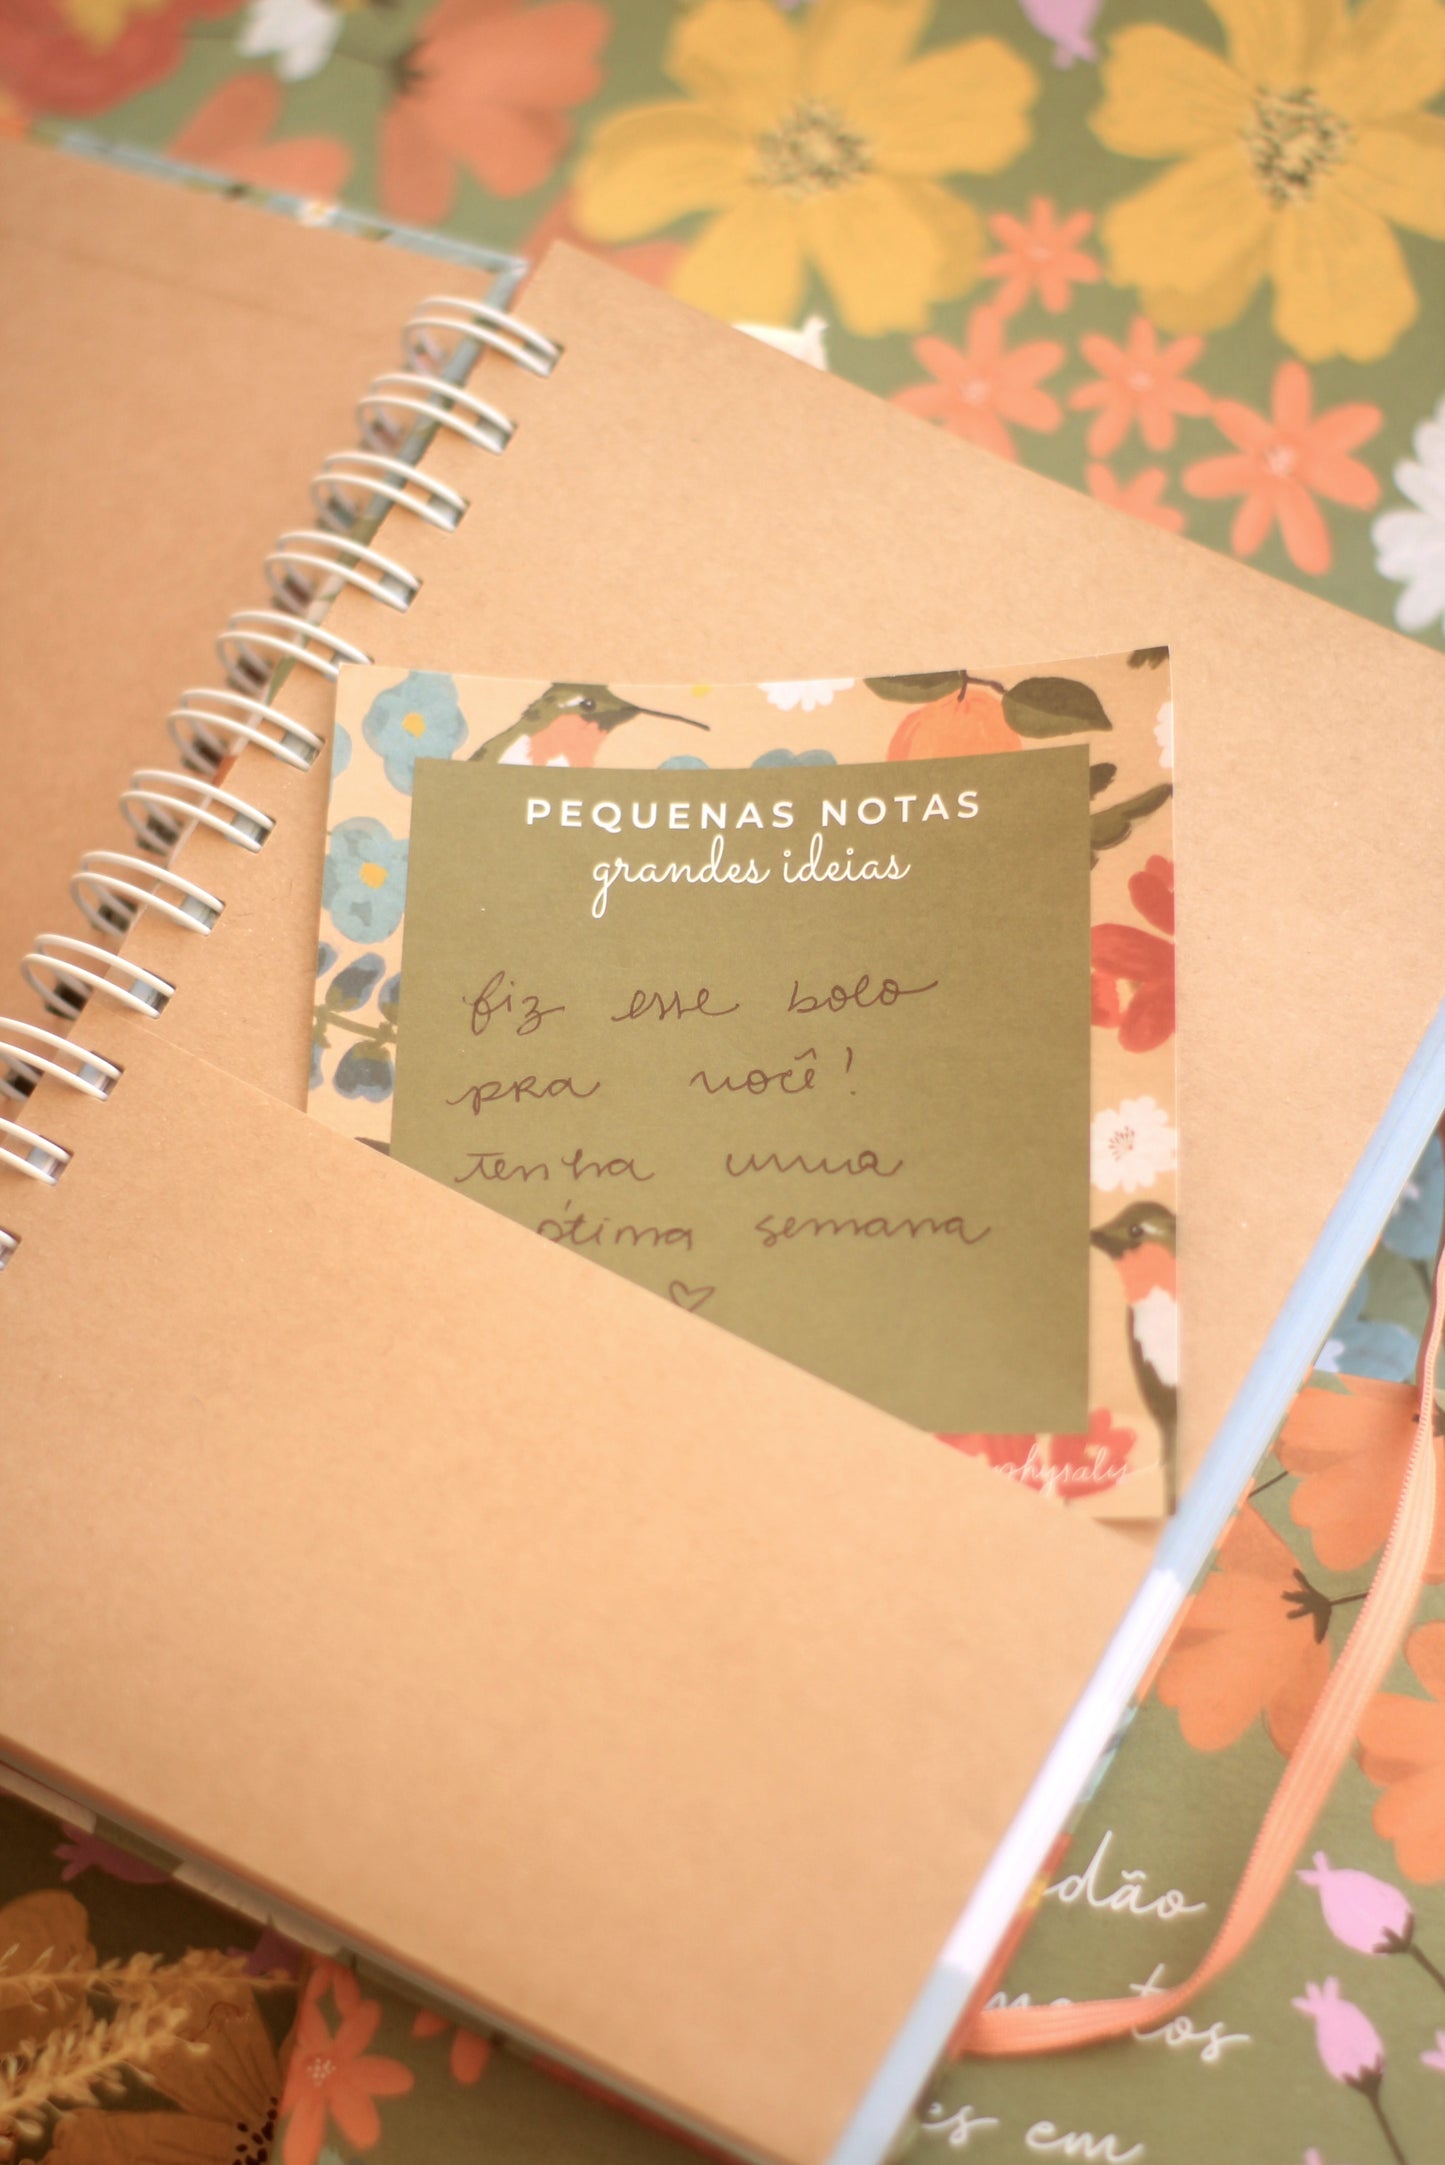 PEQUENAS NOTAS
grandes ideias
fiz esse bolo
pra você!
tenha uma
ótima semana
♡
physalis
dão
es em